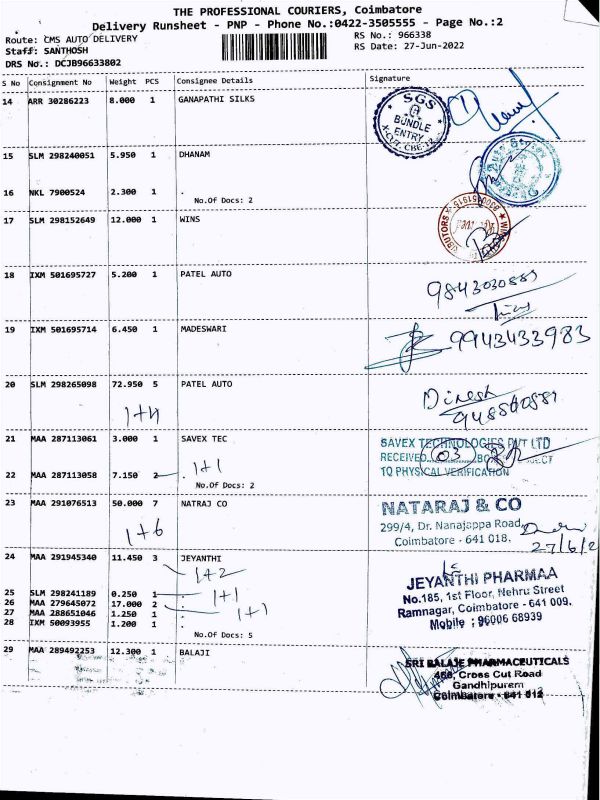 THE PROFESSIONAL COURIERS, Coimbatore
Delivery Runsheet - PNP - Phone No.:0422-3505555 - Page No.:2
Route: CMS AUTO DELIVERY
RS No.: 966338
Staff: SANTHOSH
RS Date: 27-Jun-2022
DRS No.: DCJB96633802
S No Consignment No Weight PCS Consignee Details Signature
14 ARR 30286223 8.000 1 GANAPATHI SILKS
SGS
BUNDLE
ENTRY
15 SLM 298240051 5.950 1 DHANAM
16 NKL 7900524 2.300 1 .
No.Of Docs: 2
17 SLM 298152649 12.000 1 WINS
18 IXM 501695727 5.200 1 PATEL AUTO
9843030889
19 IXM 501695714 6.450 1 MADESWARI
9943433983
20 SLM 298265098 72.950 5 PATEL AUTO
Dinesh
1+4
21 MAA 287113061 3.000 1 SAVEX TEC
SAVEX TECHNOLOGIES PVT LTD
RECEIVED 03 BOX
TO PHYSICAL VERIFICATION
22 MAA 287113058 7.150 2 . 1+1
No.Of Docs: 2
23 MAA 291076513 50.000 7 NATRAJ CO
1+6
NATARAJ & CO
299/4, Dr. Nanajappa Road,
Coimbatore - 641 018.
27/6/2
24 MAA 291945340 11.450 3 JEYANTHI
1+2
JEYANTHI PHARMAA
No.185, 1st Floor, Nehru Street
Ramnagar, Coimbatore - 641 009.
Mobile : 96006 68939
25 SLM 298241189 0.250 1 .
1+1
26 MAA 279645072 17.000 2 .
1+1
27 MAA 288651046 1.250 1 .
28 IXM 50093955 1.200 1 .
No.Of Docs: 5
29 MAA 289492253 12.300 1 BALAJI
SRI BALAJE PHARMACEUTICALS
468, Cross Cut Road
Gandhipuram
Coimbatore - 641 012